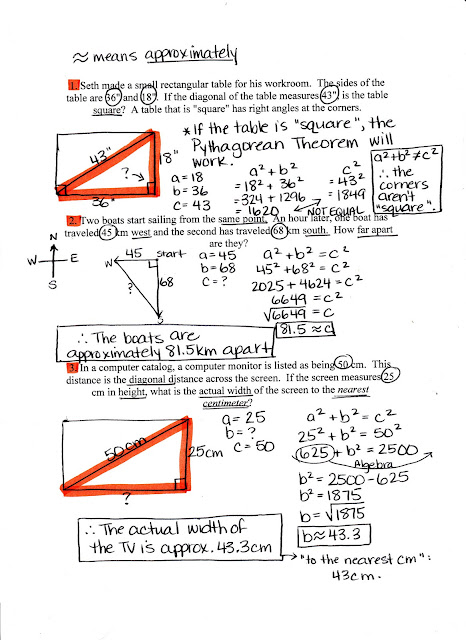 ≈ means approximately
1. Seth made a small rectangular table for his workroom. The sides of the
table are 36" and 18". If the diagonal of the table measures 43", is the table
square? A table that is "square" has right angles at the corners.
43"
?
18"
36"
* If the table is "square", the
Pythagorean Theorem will
work.
a = 18
b = 36
c = 43
a² + b²
= 18² + 36²
= 324 + 1296
= 1620
c²
= 43²
= 1849
NOT EQUAL
a² + b² ≠ c²
∴ the
corners
aren't
"square".
2. Two boats start sailing from the same point. An hour later, one boat has
traveled 45 km west and the second has traveled 68 km south. How far apart
are they?
N
W E
S
45 start
W
68
?
S
a = 45
b = 68
c = ?
a² + b² = c²
45² + 68² = c²
2025 + 4624 = c²
6649 = c²
√6649 = c
81.5 ≈ c
∴ The boats are
approximately 81.5km apart
3. In a computer catalog, a computer monitor is listed as being 50 cm. This
distance is the diagonal distance across the screen. If the screen measures 25
cm in height, what is the actual width of the screen to the nearest
centimeter?
50cm
25cm
?
a = 25
b = ?
c = 50
a² + b² = c²
25² + b² = 50²
625 + b² = 2500
Algebra
b² = 2500 - 625
b² = 1875
b = √1875
b ≈ 43.3
∴ The actual width of
the TV is approx. 43.3cm
"to the nearest cm":
43cm.